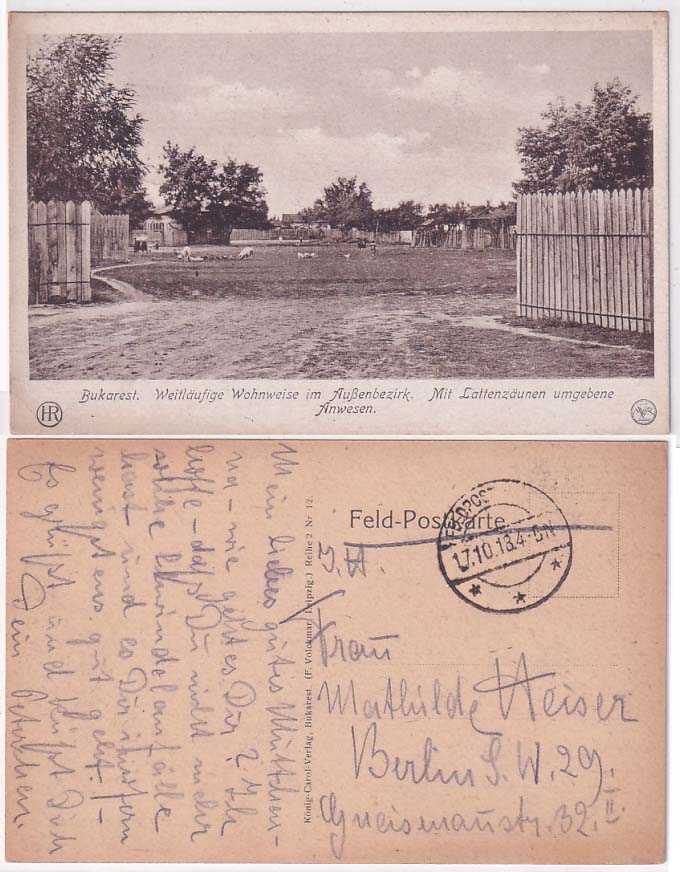 Bukarest. Weitläufige Wohnweise im Außenbezirk. Mit Lattenzäunen umgebene
Anwesen.
HR
Mein liebes gutes Muttchen-
na – wie geht es Dir? Ich
hoffe – dass Du nicht mehr
solche Schwindelanfälle
hast und es Dir
wenigstens gut geht. –
Es grüßt und küßt Dich
Dein Peterchen.
König-Carol-Verlag, Bukarest. (F. Volckmar, Leipzig.) Reihe 2 Nr 12.
Feld-Postkarte.
FELDPOST
17.10.18.4-5N
Frau
Mathilde Heiser
Berlin S.W. 29.
Gneisenaustr. 32. II.